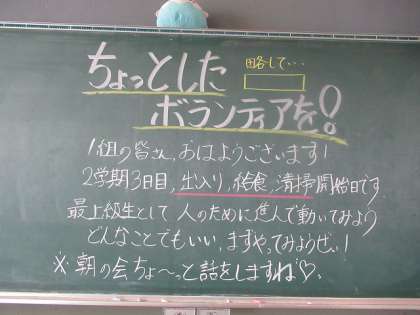 ちょっとした
略して・・・
ボランティアを！
1組の皆さん、おはようございます！
2学期3日目、出入り、給食、清掃開始日です
最上級生として 人のために進んで動いてみよう
どんなことでもいい、まずやってみようぜ、！
※朝の会ちょ〜っと話をしますね♡、